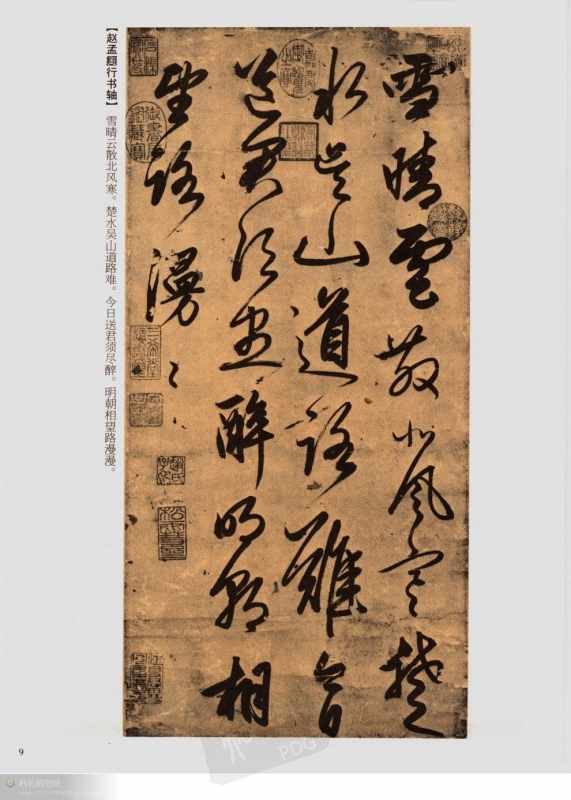 雪晴雲散北風寒楚
水吳山道路難今日
送君須盡醉明朝相
望路漫〻
趙氏子昂
松雪齋
【赵孟頫行书轴】 雪晴云散北风寒。楚水吴山道路难。今日送君须尽醉。明朝相望路漫漫。
9
PDG